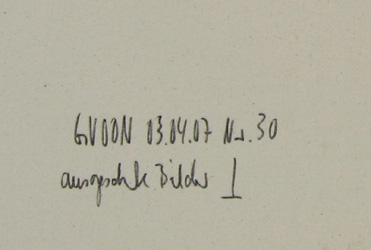 GVOON 03.04.07 Nr. 30
Bilder I